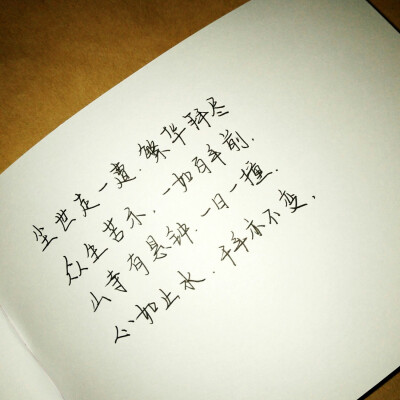 尘世走一遭.繁华尽
众生苦乐.一如百年前.
山寺有悬钟.一日一撞.
心如止水.千年亦不变.